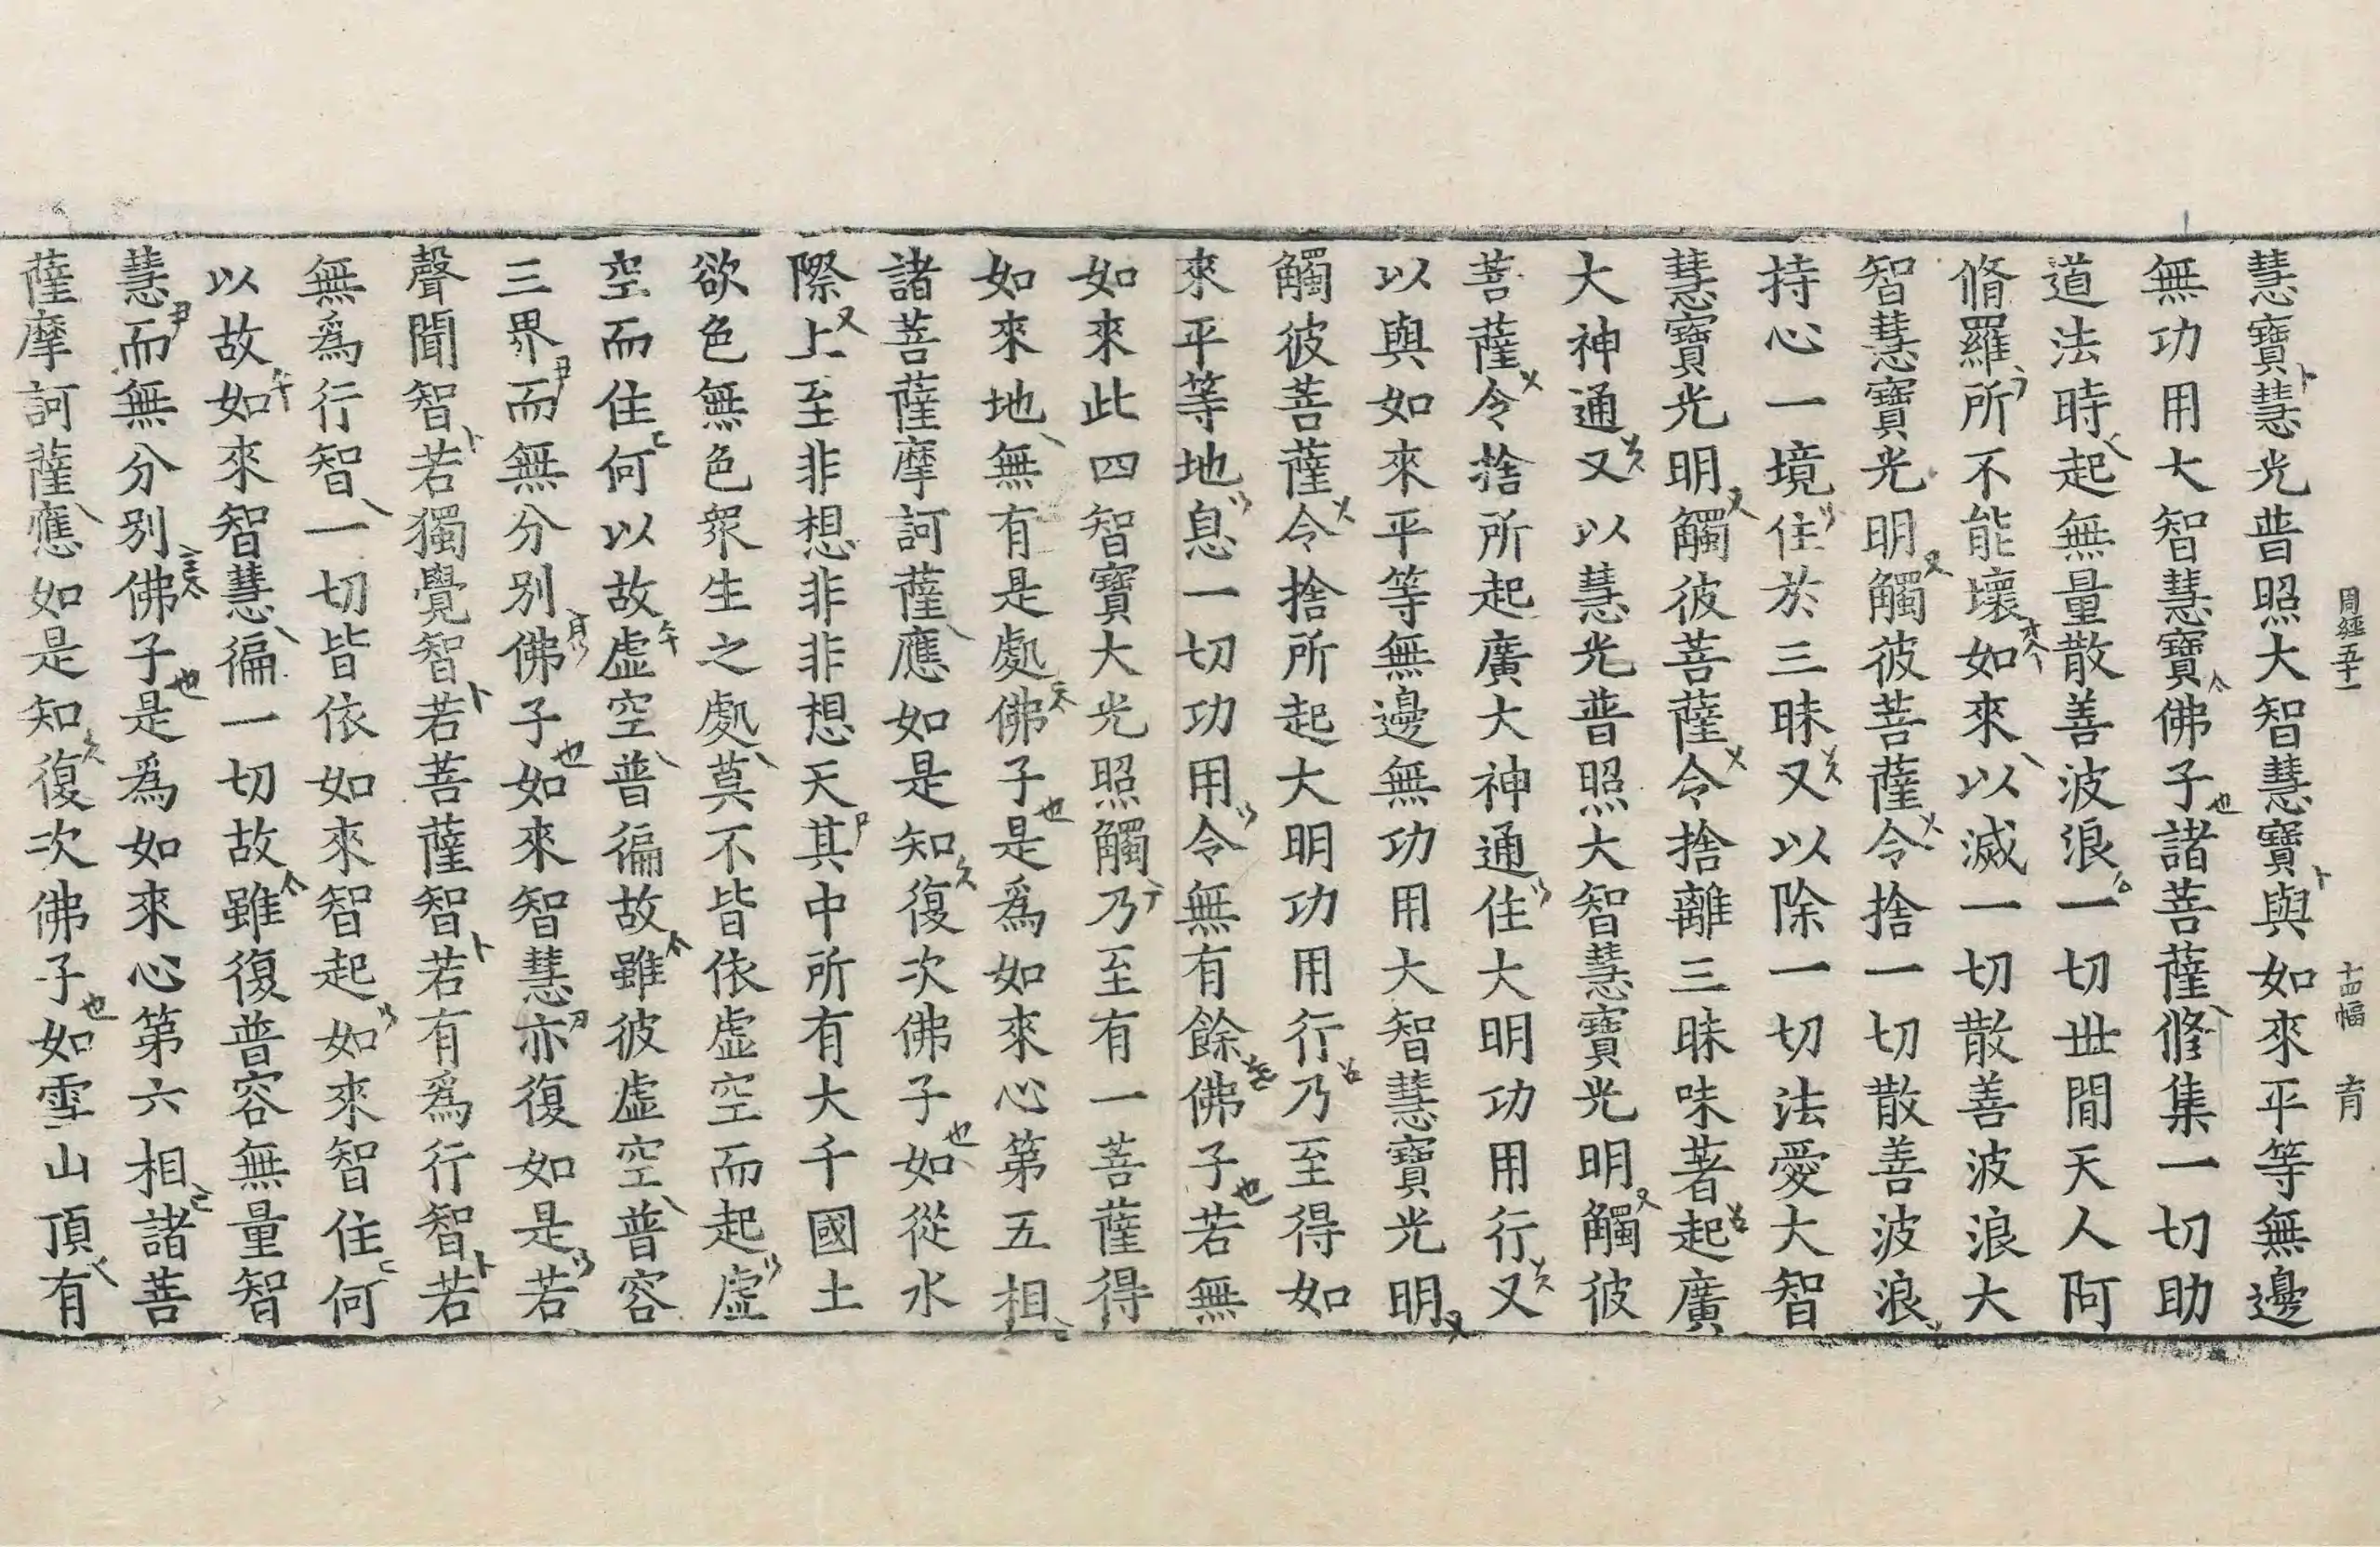 周經五十一　十四幅　育
慧寶慧光普照大智慧寶與如來平等無邊
無功用大智慧寶佛子諸菩薩修集一切助
道法時起無量散善波浪一切世間天人阿
脩羅所不能壞如來以滅一切散善波浪大
智慧寶光明觸彼菩薩令捨一切散善波浪
持心一境住於三昧又以除一切法愛大智
慧寶光明觸彼菩薩令捨離三昧味著起廣
大神通又以慧光普照大智慧寶光明觸彼
菩薩令捨所起廣大神通住大明功用行又
以與如來平等無邊無功用大智慧寶光明
觸彼菩薩令捨所起大明功用行乃至得如
來平等地息一切功用令無有餘佛子若無
如來此四智寶大光照觸乃至有一菩薩得
如來地無有是處佛子是為如來心第五相
諸菩薩摩訶薩應如是知復次佛子如從水
際上至非想非非想天其中所有大千國土
欲色無色眾生之處莫不皆依虛空而起虛
空而住何以故虛空普徧故雖彼虛空普容
三界而無分別佛子如來智慧亦復如是若
聲聞智若獨覺智若菩薩智若有為行智若
無為行智一切皆依如來智起如來智住何
以故如來智慧徧一切故雖復普容無量智
慧而無分別佛子是為如來心第六相諸菩
薩摩訶薩應如是知復次佛子如雪山頂有